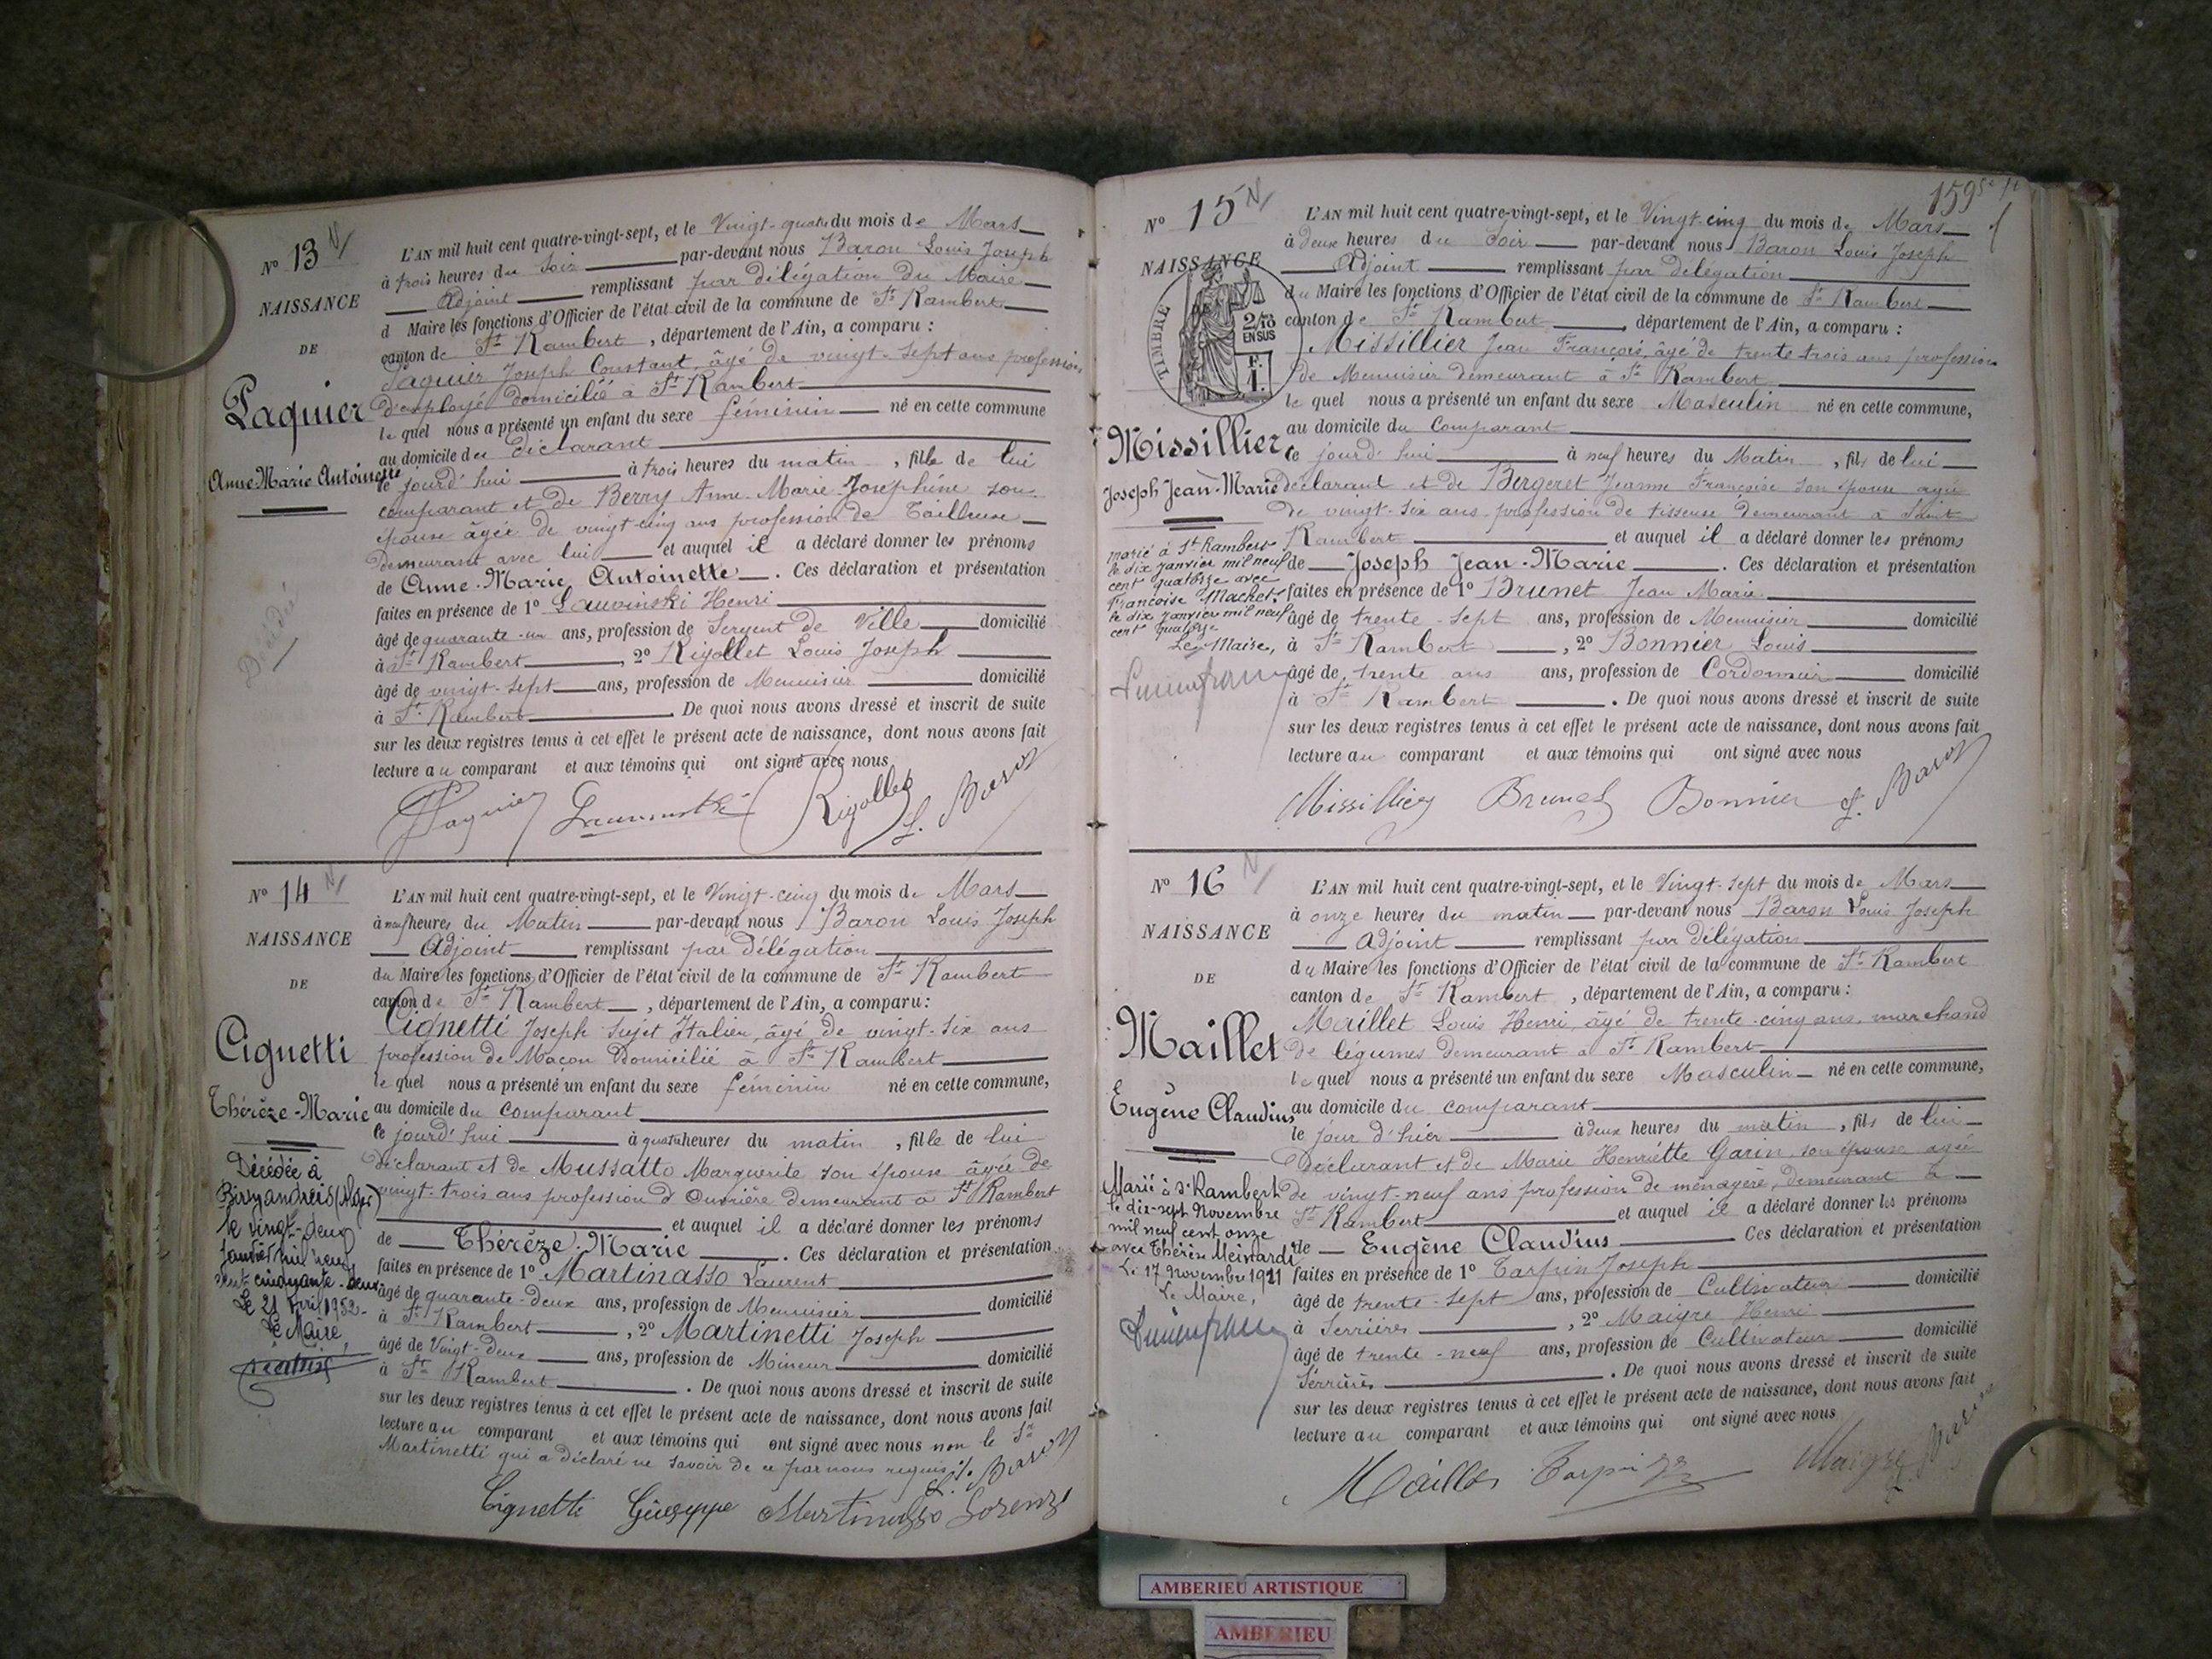 N° 13
NAISSANCE
DE
Paquier
Anne Marie Antoinette
Décédée
L'AN mil huit cent quatre-vingt-sept, et le Vingt-quatre du mois de Mars
à trois heures du Soir par-devant nous Baron Louis Joseph
Adjoint remplissant par délégation du Maire
d Maire les fonctions d'Officier de l'état civil de la commune de St Rambert
canton de St Rambert, département de l'Ain, a comparu :
Paquier Joseph Constant, âgé de vingt-sept ans profession
d'employé domicilié à St Rambert
le quel nous a présenté un enfant du sexe féminin né en cette commune
au domicile du déclarant
le jourd'hui à trois heures du matin, fille de lui
comparant et de Berry Anne-Marie Joséphine son
épouse âgée de vingt-cinq ans profession de Tailleuse
demeurant avec lui et auquel il a déclaré donner les prénoms
de Anne-Marie, Antoinette. Ces déclaration et présentation
faites en présence de 1° Lauvinski Henri
âgé de quarante-un ans, profession de Sergent de Ville domicilié
à St Rambert, 2° Rigollet Louis Joseph
âgé de vingt-sept ans, profession de Menuisier domicilié
à St Rambert. De quoi nous avons dressé et inscrit de suite
sur les deux registres tenus à cet effet le présent acte de naissance, dont nous avons fait
lecture au comparant et aux témoins qui ont signé avec nous
Paquier Rigollet L. Baron
N° 14
NAISSANCE
DE
Cignetti
Thérèze-Marie
Décédée à
Birmandreis (Alger)
le vingt-deux
janvier mil neuf
cent cinquante-deux
Le 21 Avril 1952-
Le Maire,
L'AN mil huit cent quatre-vingt-sept, et le Vingt-cinq du mois de Mars
à neuf heures du Matin par-devant nous Baron Louis Joseph
Adjoint remplissant par délégation
du Maire les fonctions d'Officier de l'état civil de la commune de St Rambert
canton de St Rambert, département de l'Ain, a comparu :
Cignetti Joseph Sujet Italien, âgé de vingt-six ans
profession de Maçon Domicilié à St Rambert
le quel nous a présenté un enfant du sexe féminin né en cette commune,
au domicile du comparant
le jourd'hui à quatre heures du matin, fille de lui
déclarant et de Mussatto Marguerite son épouse âgée de
vingt-trois ans profession d'Ouvrière demeurant à St Rambert
et auquel il a déclaré donner les prénoms
de Thérèze-Marie. Ces déclaration et présentation
faites en présence de 1° Martinasso Laurent
âgé de quarante-deux ans, profession de Menuisier domicilié
à St Rambert, 2° Martinetti Joseph
âgé de Vingt-deux ans, profession de Mineur domicilié
à St Rambert. De quoi nous avons dressé et inscrit de suite
sur les deux registres tenus à cet effet le présent acte de naissance, dont nous avons fait
lecture au comparant et aux témoins qui ont signé avec nous non le Sr
Martinetti qui a déclaré ne savoir de ce par nous requis.
L. Baron
Cignetti Giuseppe Martinasso Lorenzo
159
N° 15
NAISSANCE
TIMBRE
2/10
EN SUS
Missillier
Joseph Jean-Marie
marié à St Rambert
le dix janvier mil neuf
cent quatorze avec
Françoise Machet.
le dix janvier mil neuf
cent quatorze
Le Maire,
L'AN mil huit cent quatre-vingt-sept, et le Vingt-cinq du mois de Mars
à deux heures du Soir par-devant nous Baron Louis Joseph
Adjoint remplissant par délégation
du Maire les fonctions d'Officier de l'état civil de la commune de St Rambert
canton de St Rambert, département de l'Ain, a comparu :
Missillier Jean François, âgé de trente trois ans profession
de Menuisier demeurant à St Rambert
le quel nous a présenté un enfant du sexe Masculin né en cette commune,
au domicile du Comparant
le jourd'hui à neuf heures du Matin, fils de lui
déclarant et de Bergeret Jeanne Françoise son épouse agée
de vingt-six ans profession de tisseuse demeurant à Saint
Rambert et auquel il a déclaré donner les prénoms
de Joseph Jean-Marie. Ces déclaration et présentation
faites en présence de 1° Brunet Jean Marie
âgé de trente-sept ans, profession de Menuisier domicilié
à St Rambert, 2° Bonnier Louis
âgé de trente ans ans, profession de Cordonnier domicilié
à St Rambert. De quoi nous avons dressé et inscrit de suite
sur les deux registres tenus à cet effet le présent acte de naissance, dont nous avons fait
lecture au comparant et aux témoins qui ont signé avec nous
Missillier Brunet Bonnier L. Baron
N° 16
NAISSANCE
DE
Maillet
Eugêne Claudius
Marié à St Rambert
le dix-sept Novembre
mil neuf cent onze
avec Thérèse Meinardi
Le 17 Novembre 1911
Le Maire,
L'AN mil huit cent quatre-vingt-sept, et le Vingt-sept du mois de Mars
à onze heures du matin par-devant nous Baron Louis Joseph
Adjoint remplissant par délégation
du Maire les fonctions d'Officier de l'état civil de la commune de St Rambert
canton de St Rambert, département de l'Ain, a comparu :
Maillet Louis Henri, âgé de trente-cinq ans, marchand
de légumes demeurant à St Rambert
le quel nous a présenté un enfant du sexe Masculin né en cette commune,
au domicile du comparant
le jour d'hier à deux heures du matin, fils de lui
déclarant et de Marie Henriétte Garin, son épouse agée
de vingt-neuf ans profession de ménagère, demeurant à
St Rambert et auquel il a déclaré donner les prénoms
de Eugêne Claudius Ces déclaration et présentation
faites en présence de 1° Tarpin Joseph
âgé de trente-sept ans, profession de Cultivateur domicilié
à Serrières, 2° Maigre Henri
âgé de trente-neuf ans, profession de Cultivateur domicilié
Serrières. De quoi nous avons dressé et inscrit de suite
sur les deux registres tenus à cet effet le présent acte de naissance, dont nous avons fait
lecture au comparant et aux témoins qui ont signé avec nous
Maillet Tarpin Maigre Baron
AMBERIEU ARTISTIQUE
AMBERIEU